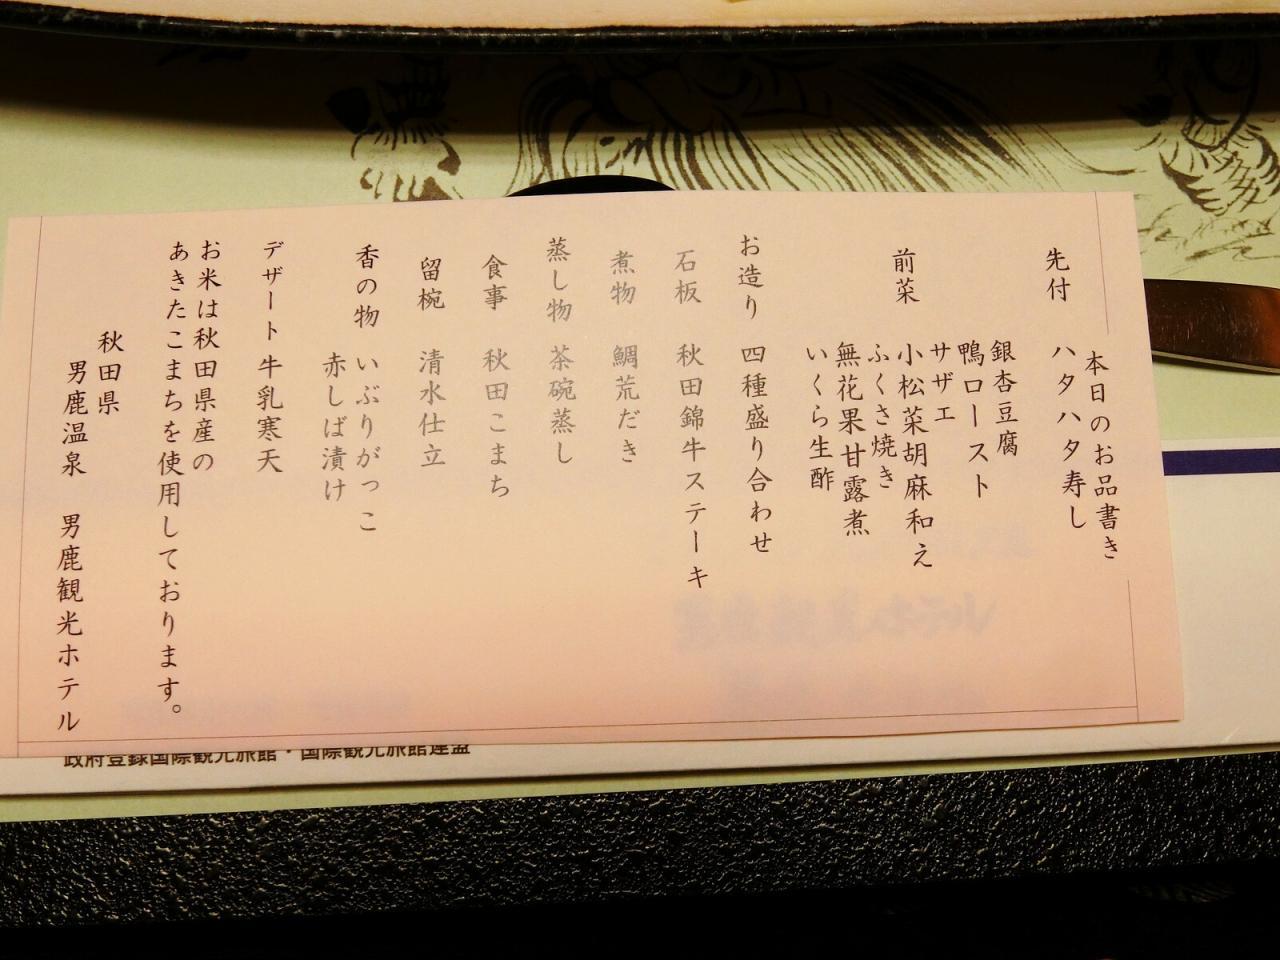 本日のお品書き
先付 ハタハタ寿し
前菜 銀杏豆腐
鴨ロースト
サザエ
小松菜胡麻和え
ふくさ焼き
無花果甘露煮
いくら生酢
お造り 四種盛り合わせ
石板 秋田錦牛ステーキ
煮物 鯛荒だき
蒸し物 茶碗蒸し
食事 秋田こまち
留椀 清水仕立
香の物 いぶりがっこ
赤しば漬け
デザート 牛乳寒天
お米は秋田県産の
あきたこまちを使用しております。
秋田県
男鹿温泉 男鹿観光ホテル
政府登録国際観光旅館・国際観光旅館連盟